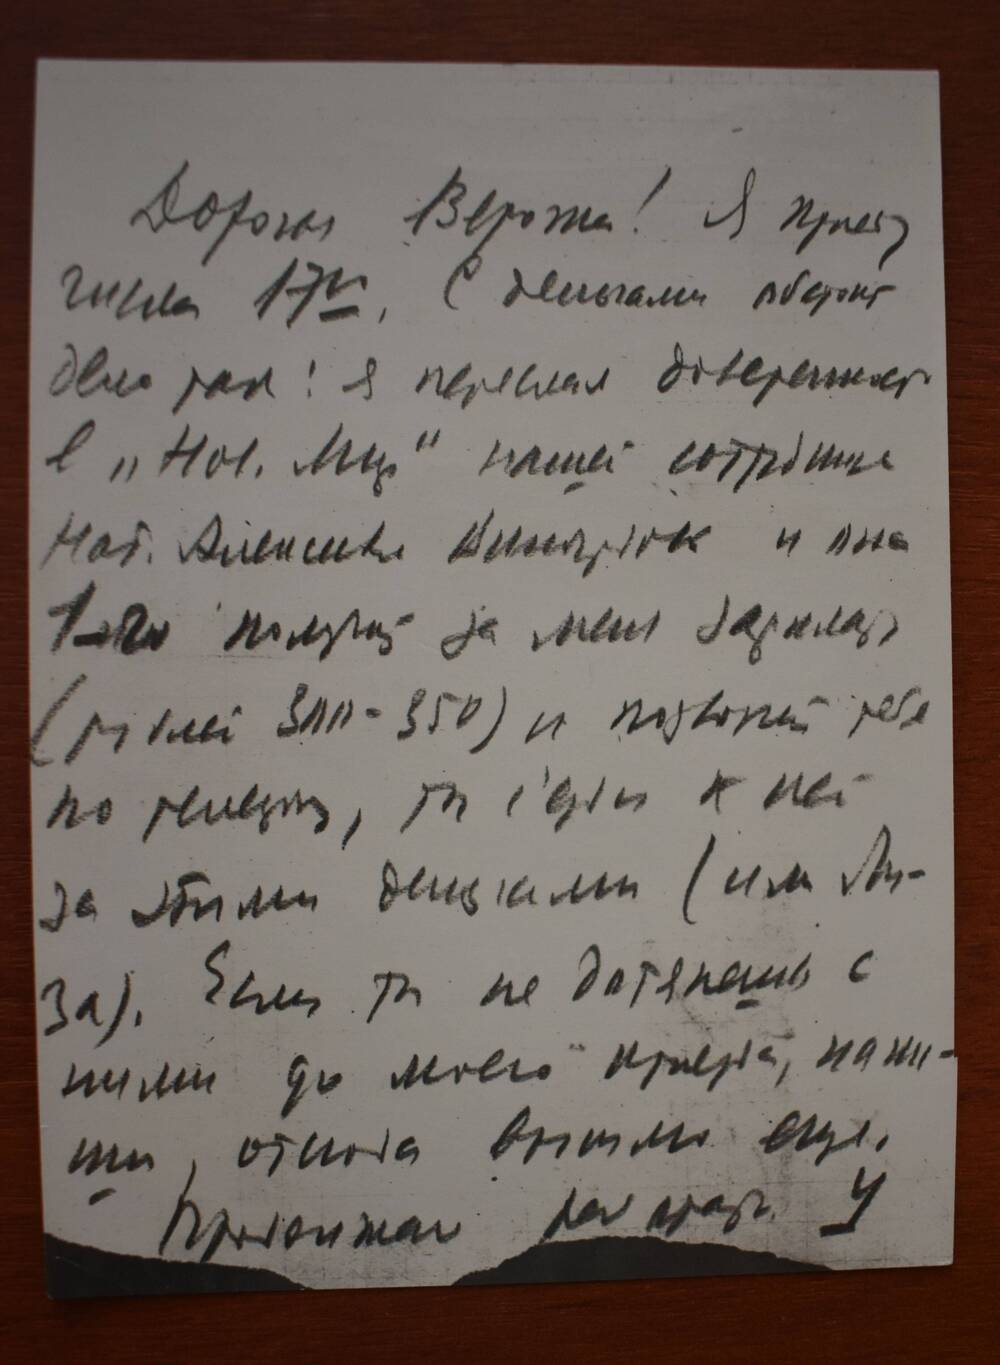 Дорогая Верочка! Я приеду
числа 17го. С деньгами обстоит
дело так: я переслал доверенност
в „Нов. Мир" нашей сотруднице
Нат. Алексеевне и она
1-го получит за меня зарплату
(рублей 300-350) и позвонит тебе
по телефону, ты съезди к ней
за этими деньгами (или Ли-
за). Если ты не дотянешь с
ними до моего приезда, напи-
ши, отсюда вышлю еще.
Продолжаю